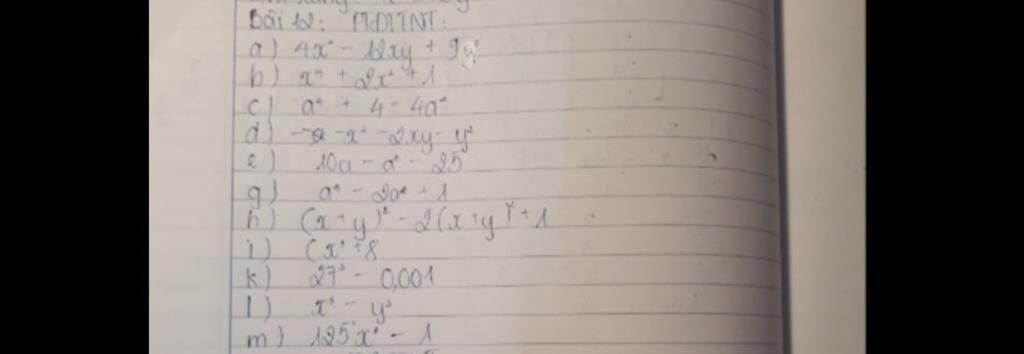 Bài 12: PTĐTTNT:
a) 4x² - 12xy + 9y²
b) x⁴ + 2x² + 1
c) a⁴ + 4 - 4a²
d) -x² - 2xy - y²
e) 10a - a² - 25
g) a⁴ - 2a² + 1
h) (x+y)² - 2(x+y)² + 1
i) (x³ + 8
k) 27³ - 0,001
l) x³ - y³
m) 125x³ - 1